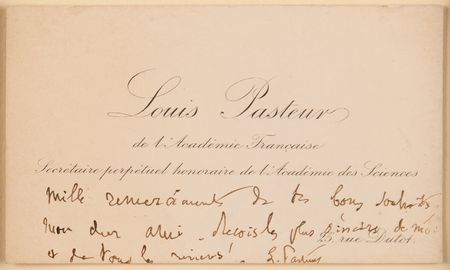 Louis Pasteur
de l'Académie Française
Secrétaire perpétuel honoraire de l'Académie des Sciences
Mille remerciements de tes bons souhaits,
mon cher ami. Reçois les plus sincères de moi
25, rue Dutot.
& de tous les miens! L. Pasteur